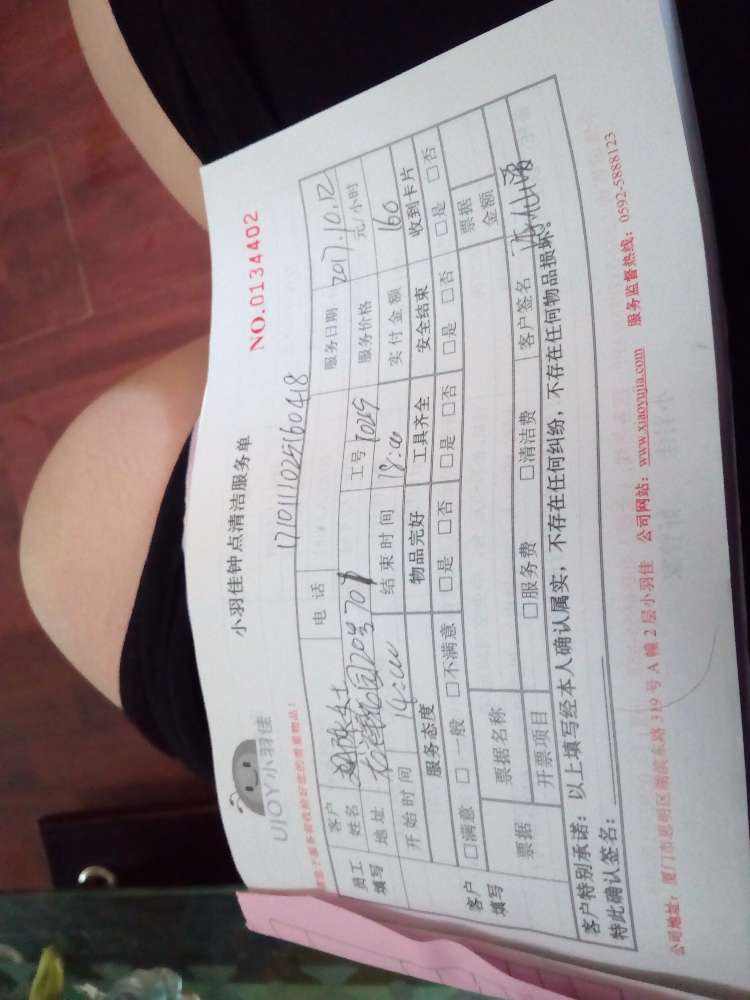 UJOY小羽佳
小羽佳钟点清洁服务单
NO.0134402
17101110225160418
员工填写 客户姓名 女士 电话 服务日期 2017.10.12
地址 20号701 工号 1029 服务价格 元/小时
开始时间 14:00 结束时间 18:00 实付金额 160
客户填写 服务态度 物品完好 工具齐全 安全结束 收到卡片
□满意 □一般 □不满意 □是 □否 □是 □否 □是 □否 □是 □否
票据 票据名称 票据金额
开票项目 □服务费 □清洁费 客户签名
客户特别承诺:以上填写经本人确认属实,不存在任何纠纷,不存在任何物品损坏。
特此确认签名:
公司地址:厦门市思明区湖滨东路319号A幢2层小羽佳 公司网站:www.xiaoyujia.com 服务监督热线:0592-5888123